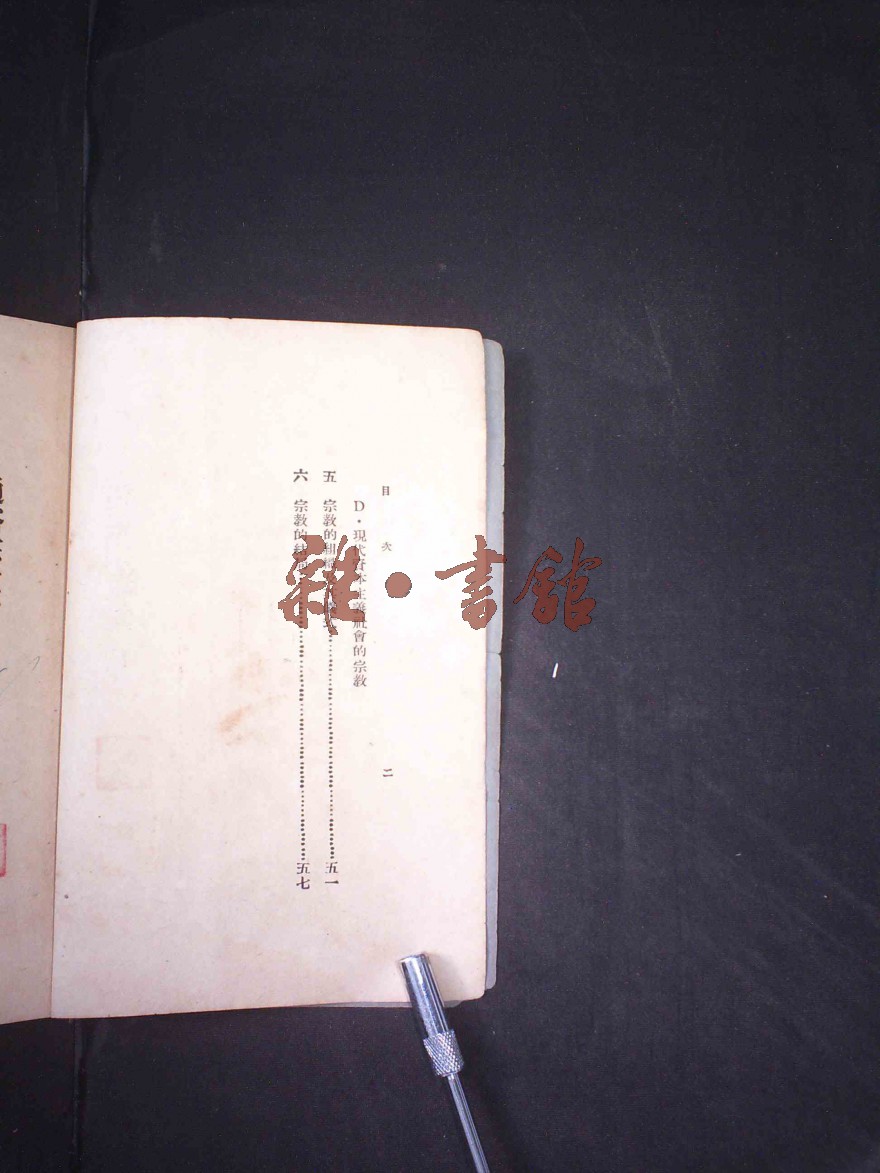 目 次 二
D・現代資本主義社會的宗教
五 宗教的組織 五一
六 宗教的 五七
雜・書館